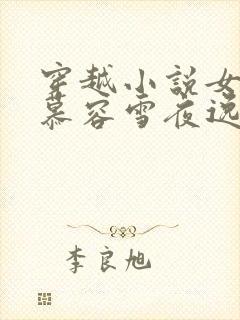 穿越小说女
慕容雪夜逃
李良旭